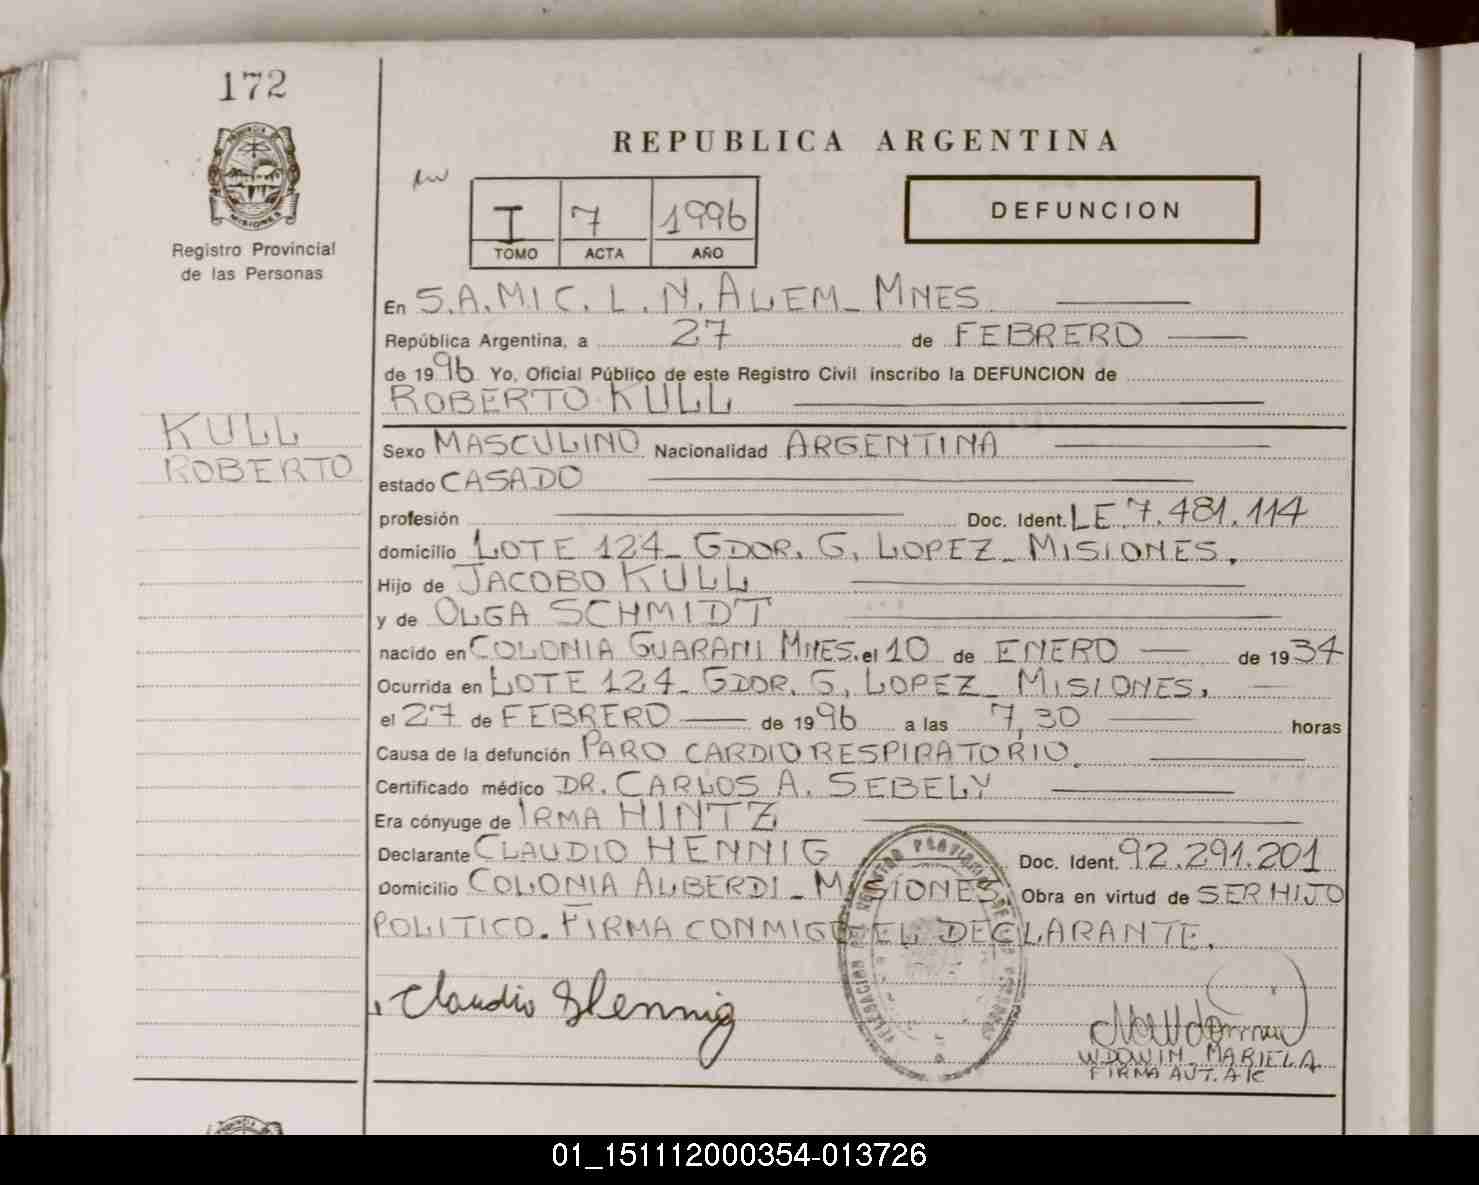 172
REPUBLICA ARGENTINA
I 7 1996
TOMO ACTA AÑO
DEFUNCION
MISIONES
Registro Provincial
de las Personas
En S.A.M.I.C. L. N. ALEM_ MNES
República Argentina, a 27 de FEBRERO
de 1996 Yo, Oficial Público de este Registro Civil inscribo la DEFUNCION de
ROBERTO KULL
KULL
ROBERTO
Sexo MASCULINO Nacionalidad ARGENTINA
estado CASADO
profesión Doc. Ident. LE 7.481.114
domicilio LOTE 124_ GDOR. G. LOPEZ_ MISIONES.
Hijo de JACOBO KULL
y de OLGA SCHMIDT
nacido en COLONIA GUARANI MNES. el 10 de ENERO de 1934
Ocurrida en LOTE 124_ GDOR. G. LOPEZ_ MISIONES.
el 27 de FEBRERO de 1996 a las 7,30 horas
Causa de la defunción PARO CARDIORESPIRATORIO.
Certificado médico DR. CARLOS A. SEBELY
Era cónyuge de IRMA HINTZ
Declarante CLAUDIO HENNIG Doc. Ident. 92.291.201
Domicilio COLONIA ALBERDI_ MISIONES Obra en virtud de SER HIJO
POLITICO. FIRMA CONMIGO EL DECLARANTE.
Claudio Hennig
WDOWIN_ MARIELA
FIRMA AUT. A/C
01_151112000354-013726